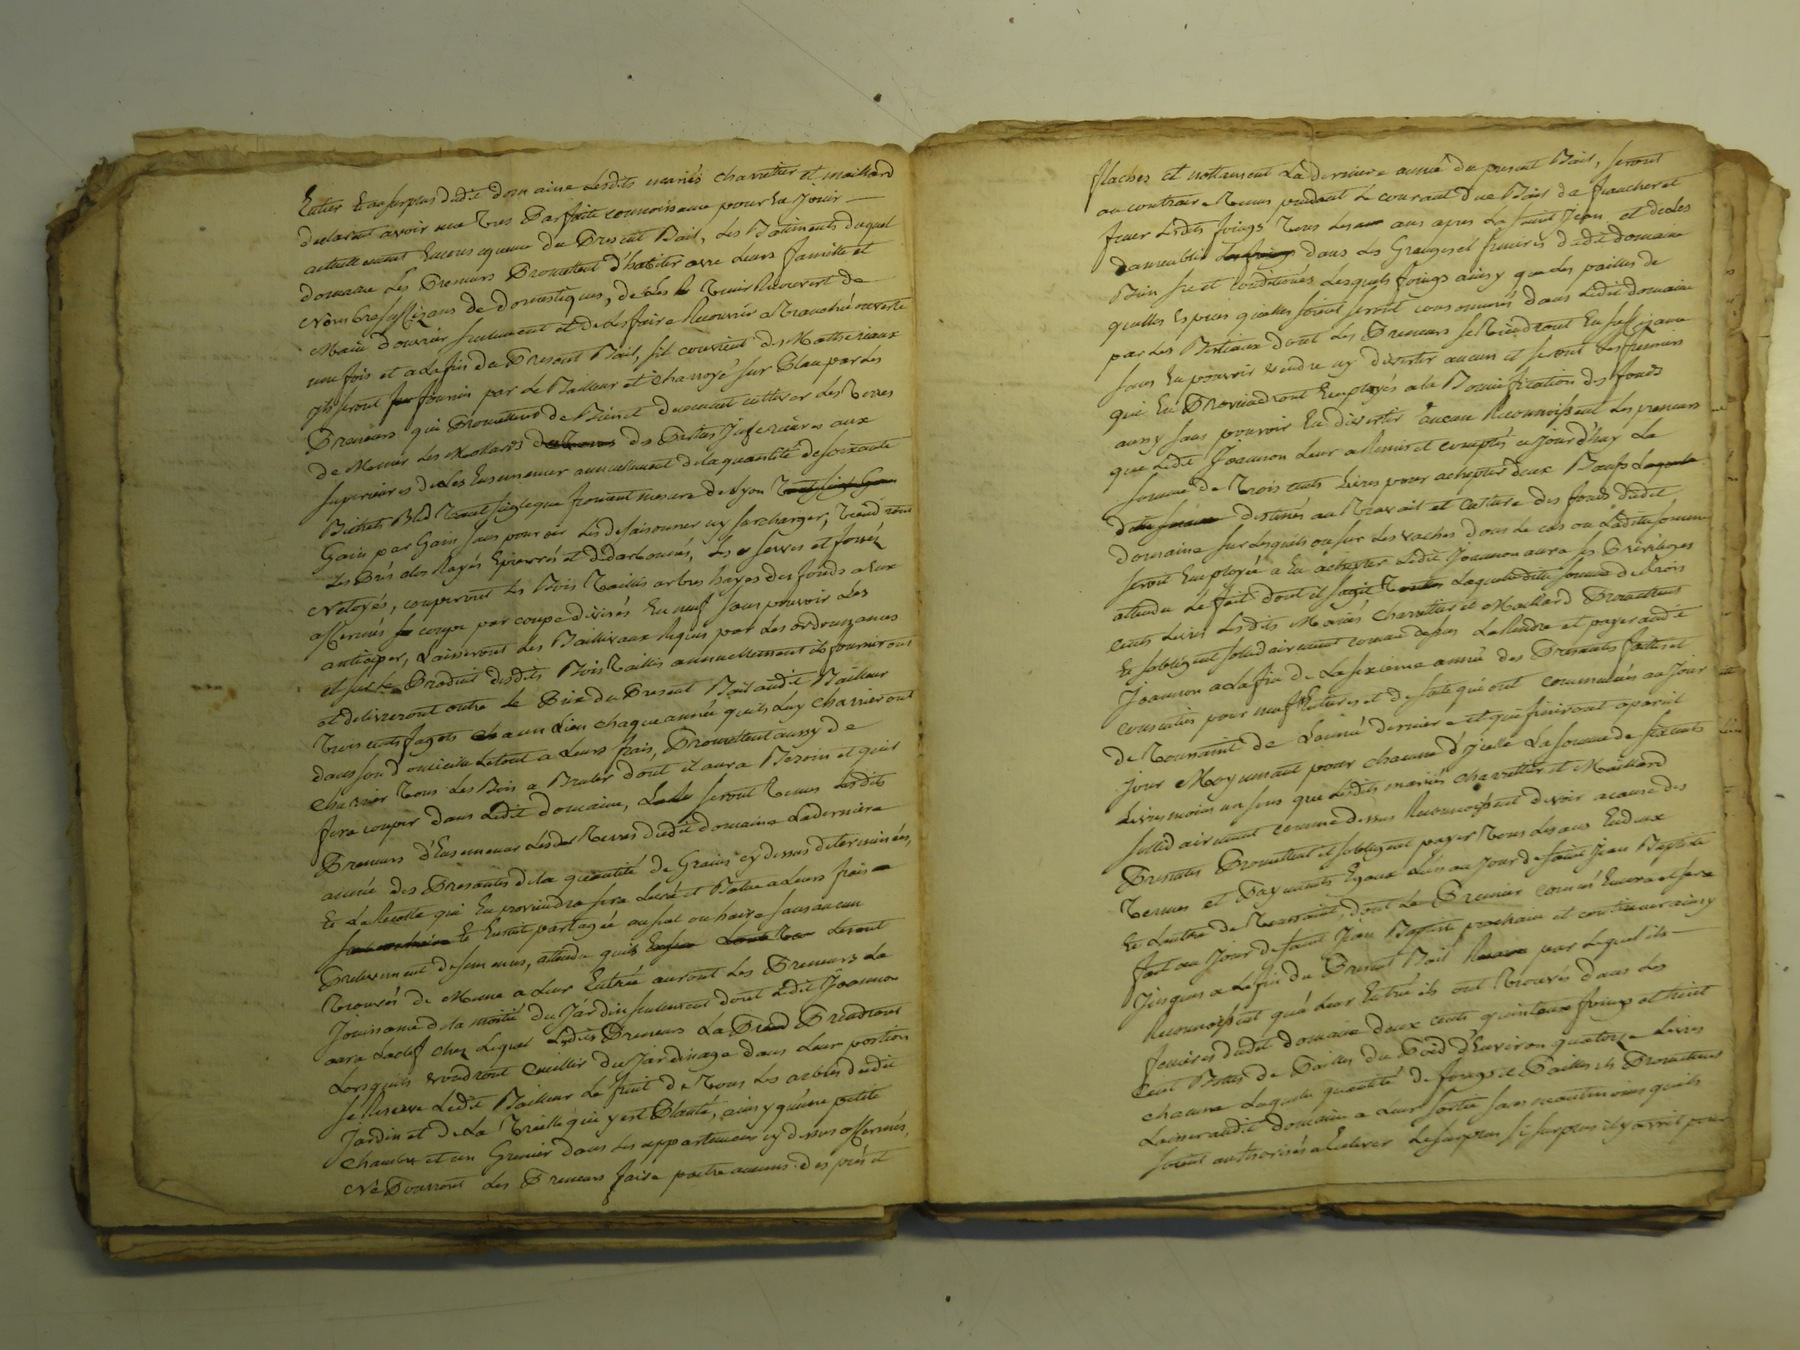 Entier Et au surplus dudit domaine lesdits mariés charretier et maillard
declarent avoir une tres Parfaite connoissance pour En Jouir
actuellement Encours que du Present Bail, des Batiments duquel
domaine Les Preneurs Promettent d'habiter avec Leurs famille et
Nombre suffizans de domestiques, de Les tenir Recouvert de
Main d'ouvrier seulement et de les faire Recouvrir a tranché ouverte
une fois et a la fin du Present Bail, s'il convient des Matheriaux
ils seront fournis par Le Bailleur et charroyé sur Place par les
Preneurs qui Promettent de Bien et duement cultiver les terres
de Mener Les Mollards des Parties Inferieures aux
superieures de Les Ensemencer annuellement de la quantité de soixante
Bichets Bled tant seigle que froment mesure de Lyon
Gain par Gain sans pouvoir Les desaisonner ny surcharger, tiendront
Les Prés clos Rayés Epierrés et , Les serves et fossés
Netoyés, couperont Les Bois taillis arbres hayes des fonds a Eux
affermés coupe par coupe divisés En neuf sans pouvoir Les
anticiper, Laisseront Les Baillivaux Requis par Les ordonnances
et sur Le Produit desdits Bois taillis annuellement ils fourniront
et delivreront outre Le Prix du Present Bail audit Bailleur
trois cents fagots chacun Lien chaque année quils Luy charrieront
dans son domicille Le tout a Leurs frais, Promettent aussy de
charrier tous Les Bois a Bruler dont il aura Besoin et quil
fera couper dans Ledit domaine, seront tenus Lesdits
Preneurs d'Ensemencer Les terres dudit domaine La derniere
année des Presentes de la quantité de Grains cy dessus determinées,
Et La Recolte qui En proviendra sera Levée et Batue a Leurs frais
Et Ensuite partagée au sol ou haire sans aucun
Prelevement de semences, attendu quils Les ont
trouvés de Meme a Leur Entrée auront Les Preneurs La
Jouissance de la moitié du Jardin seulement dont Ledit Joannon
aura La clef chez Lequel Lesdits Preneurs La Prendront
Lors quils voudront Cueillir du Jardinage dans Leur portion
se Reserve Ledit Bailleur Le fruit de tous Les arbres dudit
Jardin et de La treille qui y est Planté, ainsy qu'une petite
chambre et un Grenier dans Les appartements cy dessus affermés,
Ne Pourront Les Preneurs faire paitre aucuns des prés et
flaches et nottament La derniere année du present Bail, seront
au contraire tenus pendant Le courant dud Bail de faucher et
fener Lesdits foings tous Les ans apres La saint Jean, et de Les
dans Les Granges et fenieres dudit domaine
Bien sec et conditionés Lesquels foings ainsy que Les pailles de
quelles Espéces quelles soient seront consommés dans Ledit domaine
par Les Bestiaux dont Les Preneurs se tiendront En suffizance
sans En pouvoir vendre ny divertir aucun et seront Les fumiers
qui En Proviendront Employés a la Bonnification des fonds
aussy sans pouvoir En divertir aucun Reconnoissent Les preneurs
que Ledit Joannon Leur a Remis et comptés ce Jourd'huy La
somme de trois cents Livres pour achepter deux Bœufs
destinés au travail et culture des fonds dudit
domaine sur Lesquels ou sur Les vaches dans Le cas ou Ladite somme
seroit Employée a En achepter Ledit Joannon aura ses Privileges
attendu Le fait dont il s'agit Laquelle dite somme de trois
cents Livres Lesdits Mariés Charretier et Maillard Promettent
Et sobligent sollidairement comme dessus La Rendre et payer audit
Joannon a la fin de La sixieme année des Presentes faites et
consenties pour neuf et de suite qui ont commencées au Jour
de toussaint de L'année derniere et qui finiront a pareil
Jour Moyennant pour chacune d'ycelle La somme de
Livres moins un sous que Lesdits mariés Charretier et Maillard
sollidairement comme dessus Reconnoissent devoir a cause des
Presentes Promettent et sobligent payer tous Les ans En deux
termes et Payements Egaux L'un au Jour de saint Jean Baptiste
Et L'autre de toussaint, dont Le Premier comencé Encera et sera
fait au Jour de saint Jean Baptiste prochain et continuer ainsy
Jusques a La fin du Present Bail par Lequel ils
Reconnoissent qu'a Leur Entrée ils ont trouvés dans Les
fenieres dudit domaine deux cents quintaux foings et huit
Cent Bottes de Pailles du Poid d'Environ quatorze Livres
chacune Laquelle quantité de foings et Pailles ils Promettent
Laisser audit domaine a Leur sortie sans neantmoins quils
soient authorisés a Enlever Le surplus si surplus il y avoit pour